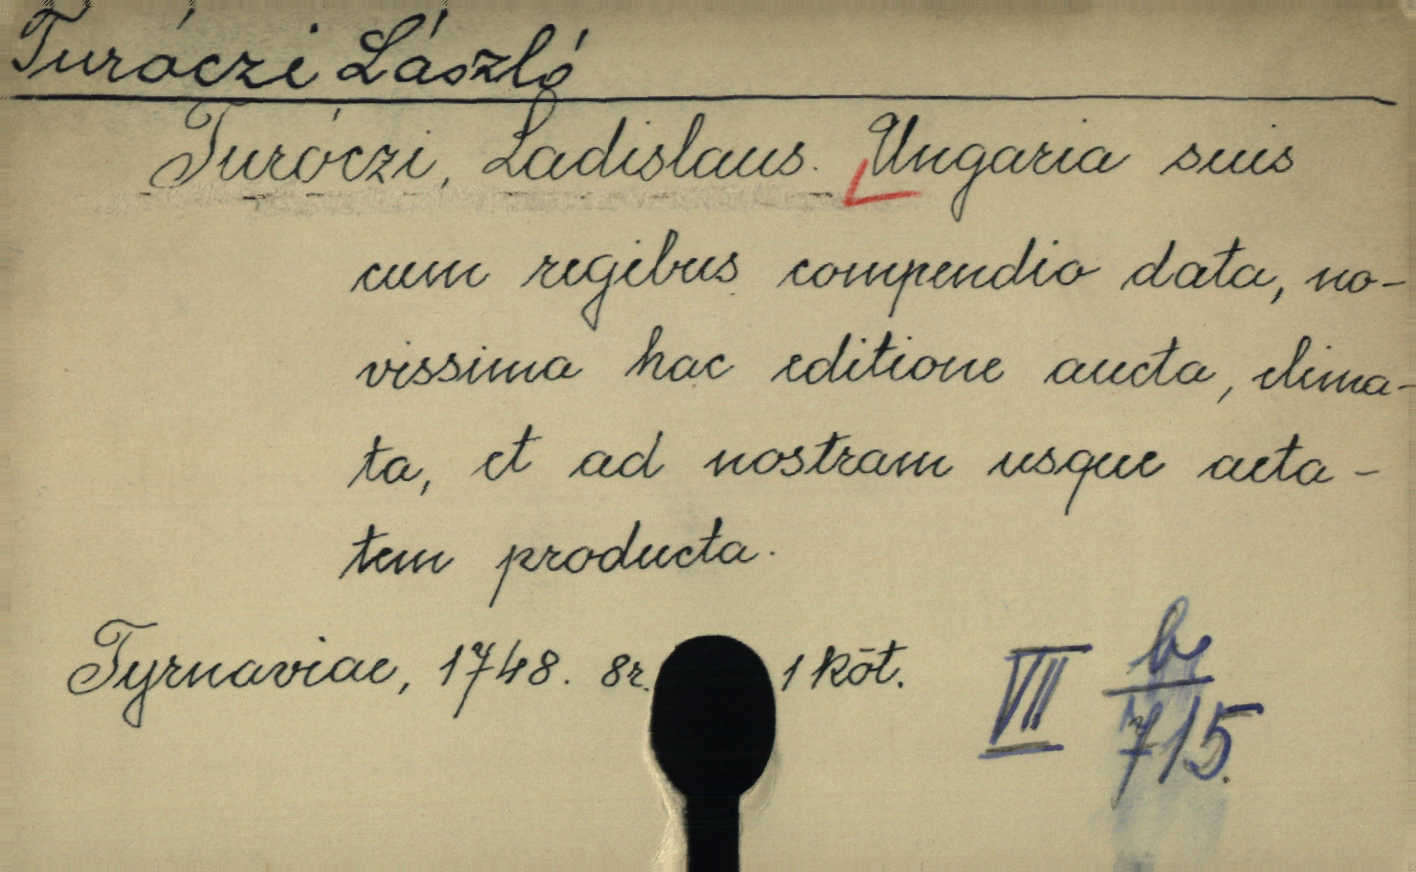 Turóczi László
Turóczi, Ladislaus. Ungaria suis
cum regibus compendio data, no-
vissima hac editione aucta, elima-
ta, et ad nostram usque aeta-
tem producta.
Tyrnaviae, 1748. 8r. 1 köt.
VII b
715.